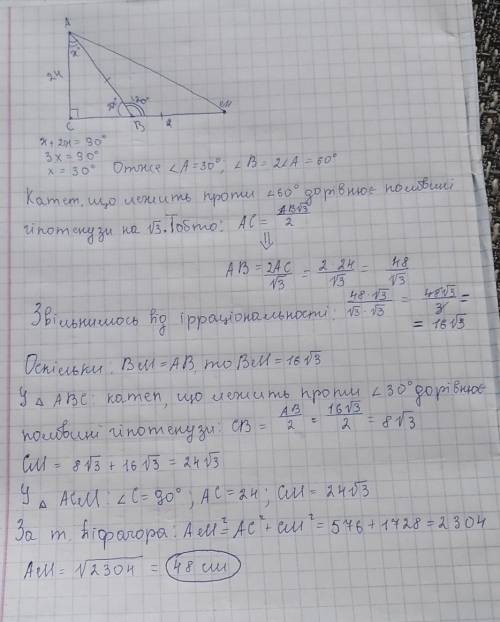 A
x
24
C
B
M
120°
2
x + 2x = 90°
3x = 90°
x = 30°
Отже ∠A = 30°, ∠B = 2∠A = 60°
Катет, що лежить проти ∠60° дорівнює половині
гіпотенузи на √3. Тобто: AC = AB√3/2
⇓
AB = 2AC/√3 = 2·24/√3 = 48/√3
Звільнимось від ірраціональності: 48·√3/√3·√3 = 48√3/3 =
= 16√3
Оскільки BM = AB, то BM = 16√3
У △ ABC: катет, що лежить проти ∠30° дорівнює
половині гіпотенузи: CB = AB/2 = 16√3/2 = 8√3
CM = 8√3 + 16√3 = 24√3
У △ ACM: ∠C = 90°; AC = 24; CM = 24√3
За т. Піфагора: AM² = AC² + CM² = 576 + 1728 = 2304
AM = √2304 = 48 см